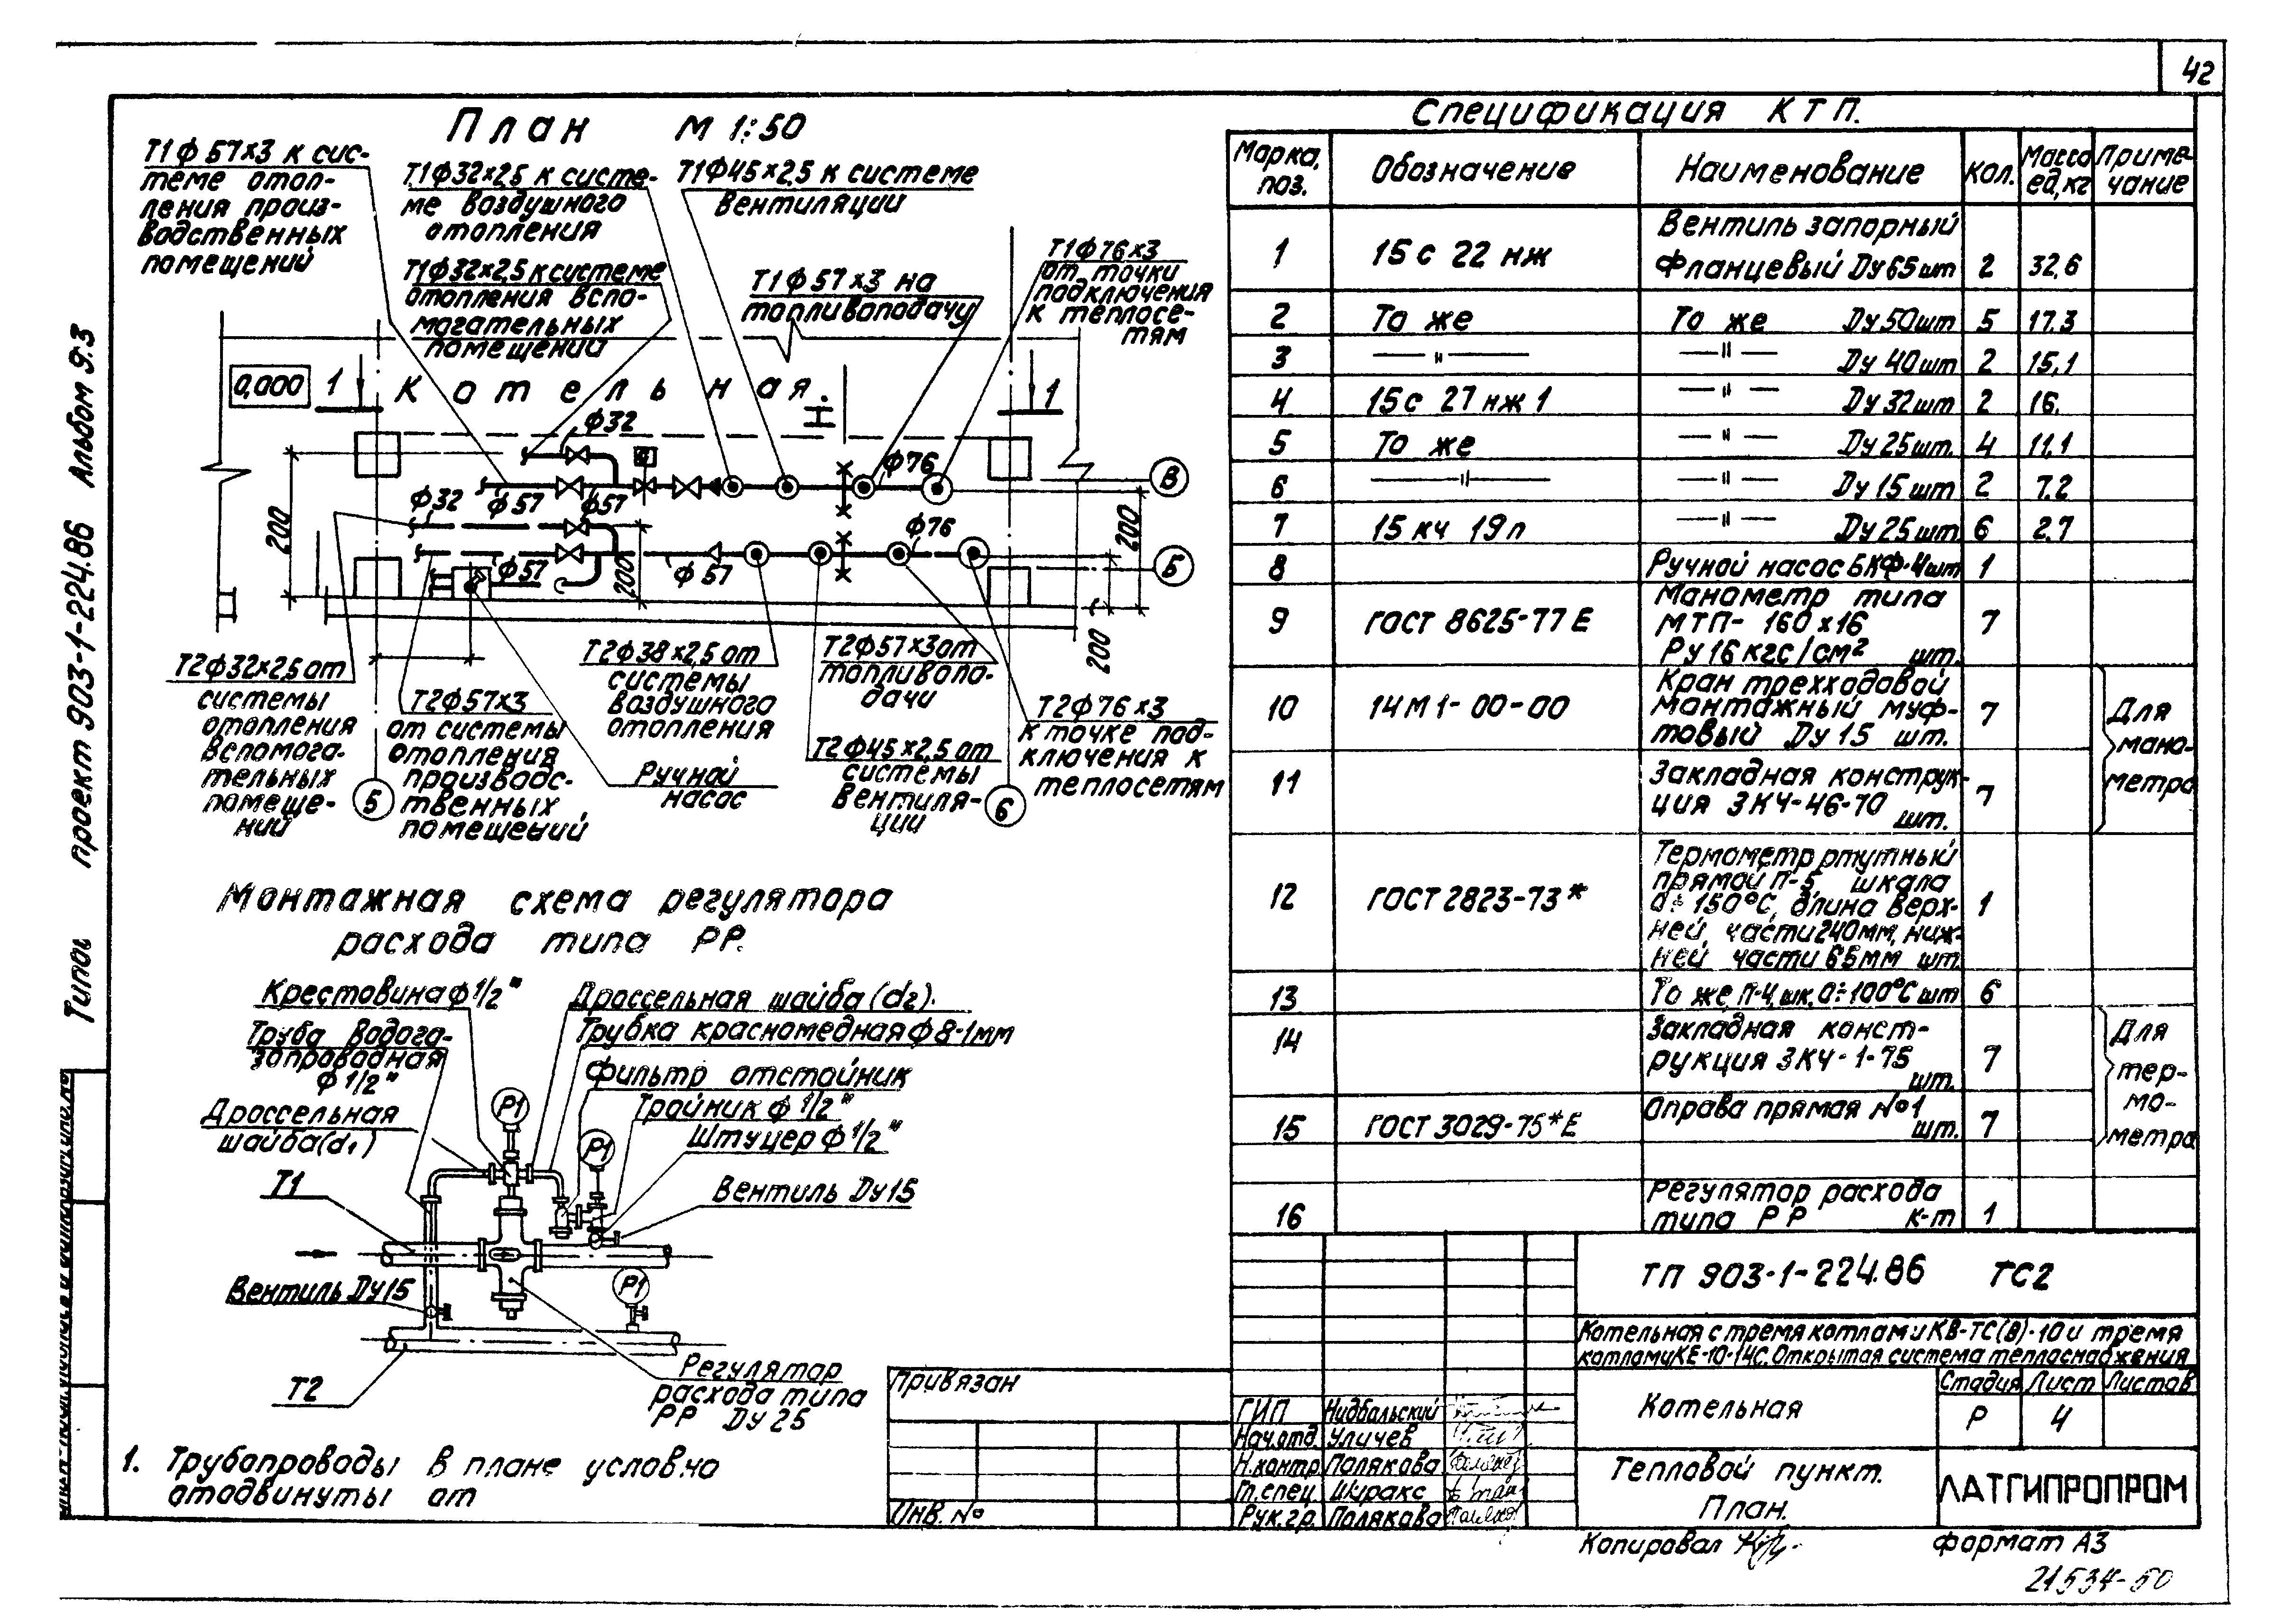 42
План М 1:50
Т1ф57×3 к сис-
теме отоп-
ления произ-
водственных
помещений
Т1ф32×2,5 к систе-
ме воздушного
отопления
Т1ф45×2,5 к системе
вентиляции
Т1ф32×2,5 к системе
отопления вспо-
могательных
помещений
Т1ф57×3 на
топливоподачу
Т1ф76×3
от точки
подключения
к теплосе-
тям
0,000
1
Котельная.
1
ф32
ф76
В
ф32
ф57
ф57
200
ф76
200
Б
ф57
200
ф57
200
Т2ф32×2,5 от
системы
отопления
вспомога-
тельных
помеще-
ний
5
Т2ф57×3
от системы
отопления
производс-
твенных
помещений
Т2ф38×2,5 от
системы
воздушного
отопления
Ручной
насос
Т2ф57×3 от
топливопо-
дачи
Т2ф45×2,5 от
системы
вентиля-
ции
6
Т2ф76×3
к точке под-
ключения к
теплосетям
Монтажная схема регулятора
расхода типа РР.
Крестовина ф1/2"
Труба водога-
зопроводная
ф1/2"
Дроссельная
шайба(d1)
Дроссельная шайба (d2).
Трубка красномедная ф8-1мм
Фильтр отстойник
Тройник ф1/2"
Штуцер ф1/2"
Вентиль Dу15
Р1
Р1
Т1
Вентиль Dу15
Р1
Т2
Регулятор
расхода типа
РР Dу25
1. Трубопроводы в плане условно
отодвинуты от
Спецификация КТП.
Марка, поз. Обозначение Наименование Кол. Масса ед,кг Приме-чание
1 15с 22 нж Вентиль запорный фланцевый Dу65 шт 2 32,6
2 То же То же Dу50шт 5 17.3
3 —"— —"— Dу40шт 2 15,1
4 15с 27нж1 —"— Dу32шт 2 16.
5 То же —"— Dу25шт. 4 11,1
6 —"— —"— Dу15шт 2 7.2
7 15кч 19п —"— Dу25шт 6 2.7
8 Ручной насос БКФ-4шт 1
9 ГОСТ 8625-77Е Манометр типа
МТП-160×16
Ру16кгс/см² шт. 7
10 14М1-00-00 Кран трехходовой
монтажный муф-
товый Dу15 шт. 7
11 Закладная конструк-
ция ЗКЧ-46-70
шт. 7
Для
мано-
метра
12 ГОСТ 2823-73* Термометр ртутный
прямой П-5, шкала
0÷150°С, длина верх-
ней части 240мм, ниж-
ней части 65мм шт. 1
13 То же П-4, шк. 0÷100°С шт 6
14 Закладная конст-
рукция ЗКЧ-1-75
шт. 7
15 ГОСТ 3029-75*Е Оправа прямая №1
шт. 7
Для
тер-
мо-
метра
16 Регулятор расхода
типа РР к-т 1
ТП 903-1-224.86 ТС2
Котельная с тремя котлами КВ-ТС(В)-10 и тремя
котлами КЕ-10-14С. Открытая система теплоснабжения
Привязан
Инв. №
ГИП Нидбальский
Нач.отд. Уличев
Н.контр. Полякова
Гл.спец. Ширакс
Рук.гр. Полякова
Котельная
Стадия Лист Листов
Р 4
Тепловой пункт.
План.
ЛАТГИПРОПРОМ
Копировал
формат А3
21534-50
Типов проект 903-1-224.86 Альбом 9.3